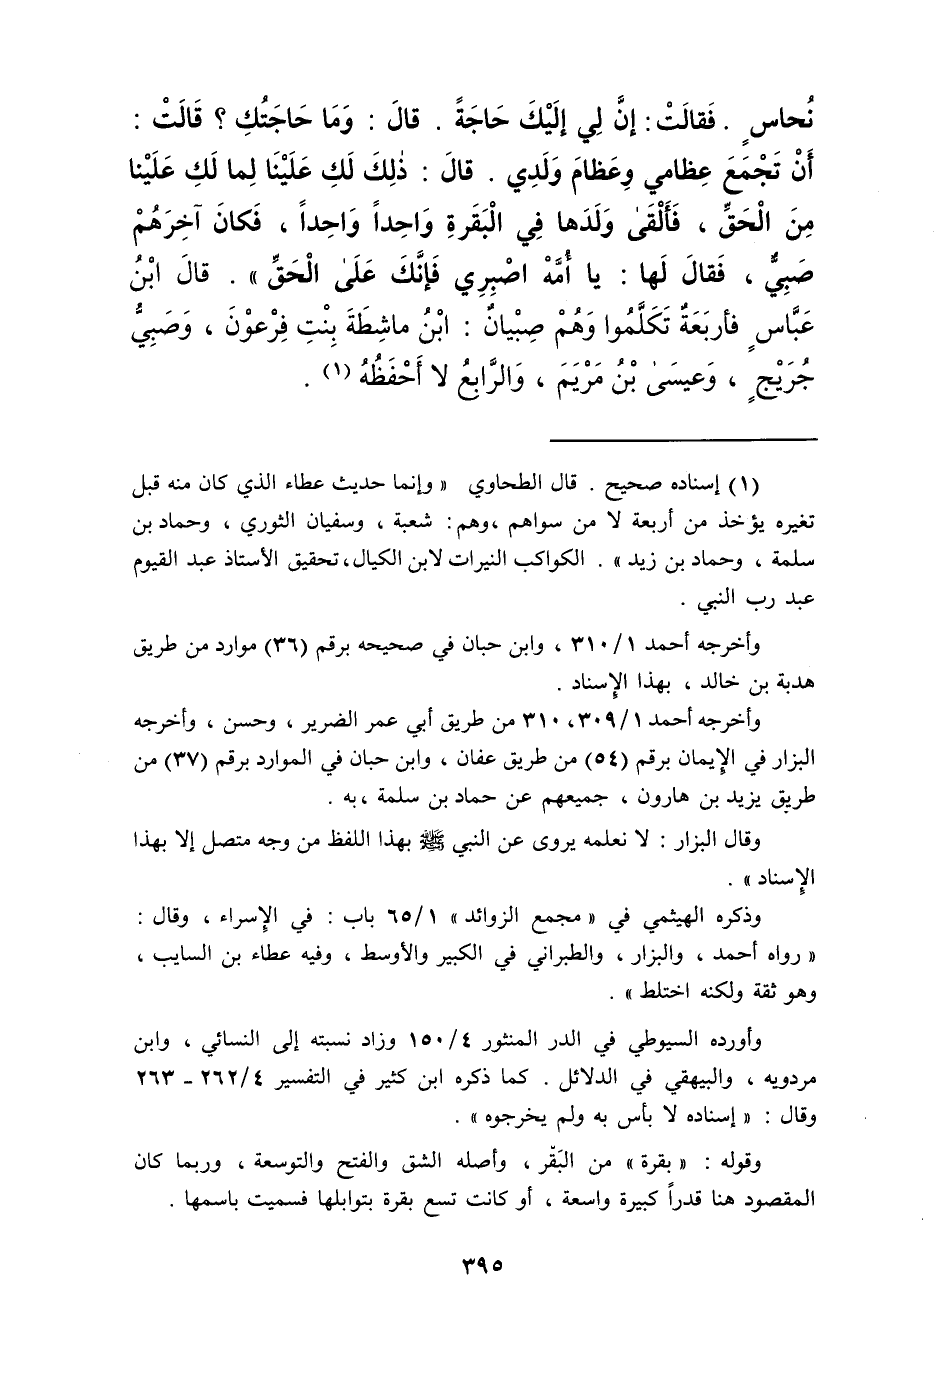 نُحاسٍ . فَقالَتْ: إنَّ لِي إلَيْكَ حَاجَةً . قالَ : وَمَا حَاجَتُكِ ؟ قَالَتْ :
أَنْ تَجْمَعَ عِظامي وِعَظامَ وَلَدِي . قالَ : ذٰلِكَ لَكِ عَلَيْنَا لِما لَكِ عَلَيْنا
مِنَ الْحَقِّ ، فَأَلْقَىٰ وَلَدَها فِي الْبَقَرةِ وَاحِداً وَاحِداً ، فَكانَ آخِرَهُمْ
صَبِيٌّ ، فَقالَ لَها : يا أُمَّهْ اصْبِرِي فَإنَّكَ عَلَىٰ الْحَقِّ » . قالَ ابْنُ
عَبَّاسٍ فأربَعَةٌ تَكَلَّمُوا وَهُمْ صِبْيانٌ : ابْنُ ماشِطَةَ بِنْتِ فِرْعوْنَ ، وَصَبِيُّ
جُرَيْجٍ ، وَعيسَىٰ بْنُ مَرْيَمَ ، وَالرَّابعُ لا أَحْفَظُهُ (١) .
(١) إسناده صحيح . قال الطحاوي « وإنما حديث عطاء الذي كان منه قبل
تغيره يؤخذ من أربعة لا من سواهم ،وهم: شعبة ، وسفيان الثوري ، وحماد بن
سلمة ، وحماد بن زيد » . الكواكب النيرات لابن الكيال، تحقيق الأستاذ عبد القيوم
عبد رب النبي .
وأخرجه أحمد ٣١٠/١ ، وابن حبان في صحيحه برقم (٣٦) موارد من طريق
هدبة بن خالد ، بهذا الإسناد .
وأخرجه أحمد ٣٠٩/١، ٣١٠ من طريق أبي عمر الضرير ، وحسن ، وأخرجه
البزار في الإيمان برقم (٥٤) من طريق عفان ، وابن حبان في الموارد برقم (٣٧) من
طريق يزيد بن هارون ، جميعهم عن حماد بن سلمة ،به .
وقال البزار : لا نعلمه يروى عن النبي ﷺ بهذا اللفظ من وجه متصل إلا بهذا
الإسناد » .
وذكره الهيثمي في « مجمع الزوائد » ٦٥/١ باب : في الإسراء ، وقال :
« رواه أحمد ، والبزار ، والطبراني في الكبير والأوسط ، وفيه عطاء بن السايب ،
وهو ثقة ولكنه اختلط » .
وأورده السيوطي في الدر المنثور ١٥٠/٤ وزاد نسبته إلى النسائي ، وابن
مردويه ، والبيهقي في الدلائل . كما ذكره ابن كثير في التفسير ٢٦٢/٤ - ٢٦٣
وقال : « إسناده لا بأس به ولم يخرجوه » .
وقوله : « بقرة » من البَقْر ، وأصله الشق والفتح والتوسعة ، وربما كان
المقصود هنا قدراً كبيرة واسعة ، أو كانت تسع بقرة بتوابلها فسميت باسمها .
٣٩٥